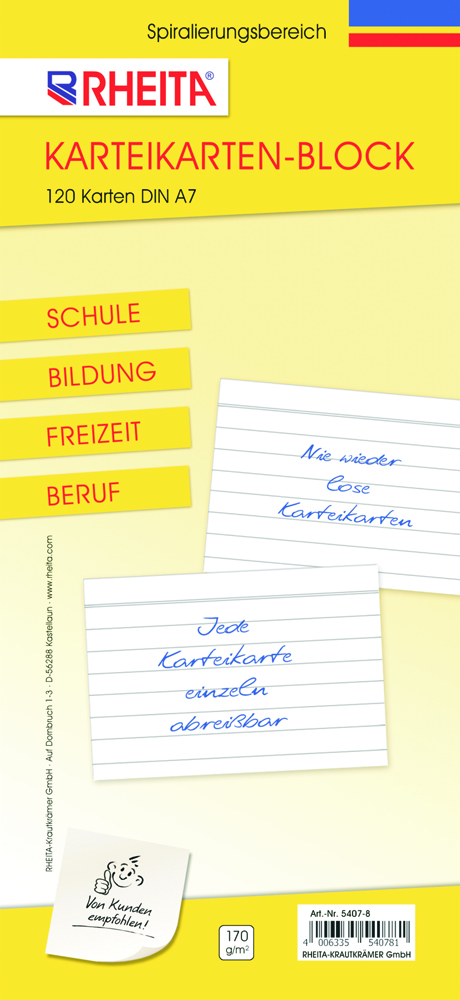 Spiralierungsbereich
RHEITA®
KARTEIKARTEN-BLOCK
120 Karten DIN A7
SCHULE
BILDUNG
FREIZEIT
BERUF
Nie wieder
lose
Karteikarten
Jede
Karteikarte
einzeln
abreißbar
RHEITA-Krautkrämer GmbH · Auf Dombruch 1-3 · D-56288 Kastellaun · www.rheita.com
Von Kunden
empfohlen!
170
g/m²
Art.-Nr. 5407-8
4 006335 540781
RHEITA-KRAUTKRÄMER GmbH